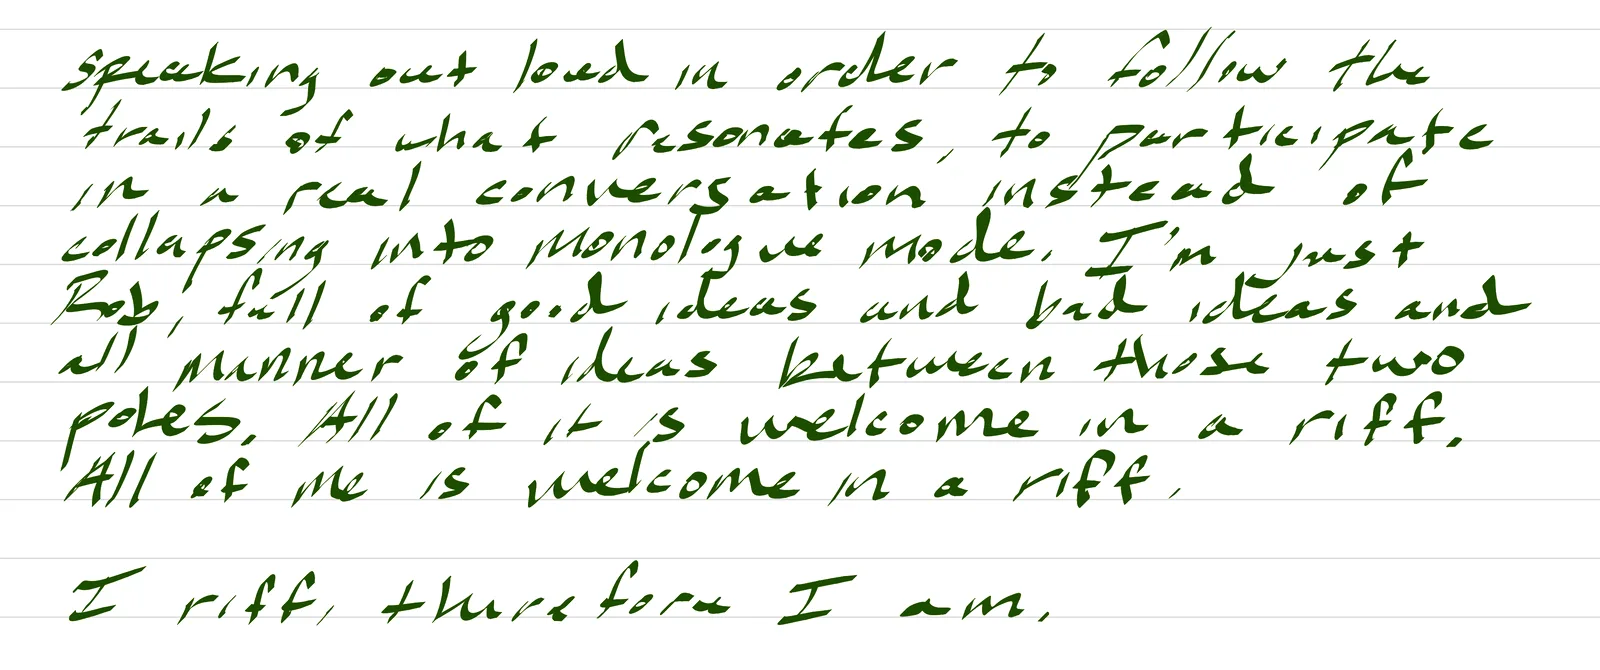 speaking out loud in order to follow the
trails of what resonates, to participate
in a real conversation instead of
collapsing into monologue mode. I'm just
Rob, full of good ideas and bad ideas and
all manner of ideas between those two
poles. All of it is welcome in a riff.
All of me is welcome in a riff.
I riff, therefore I am.